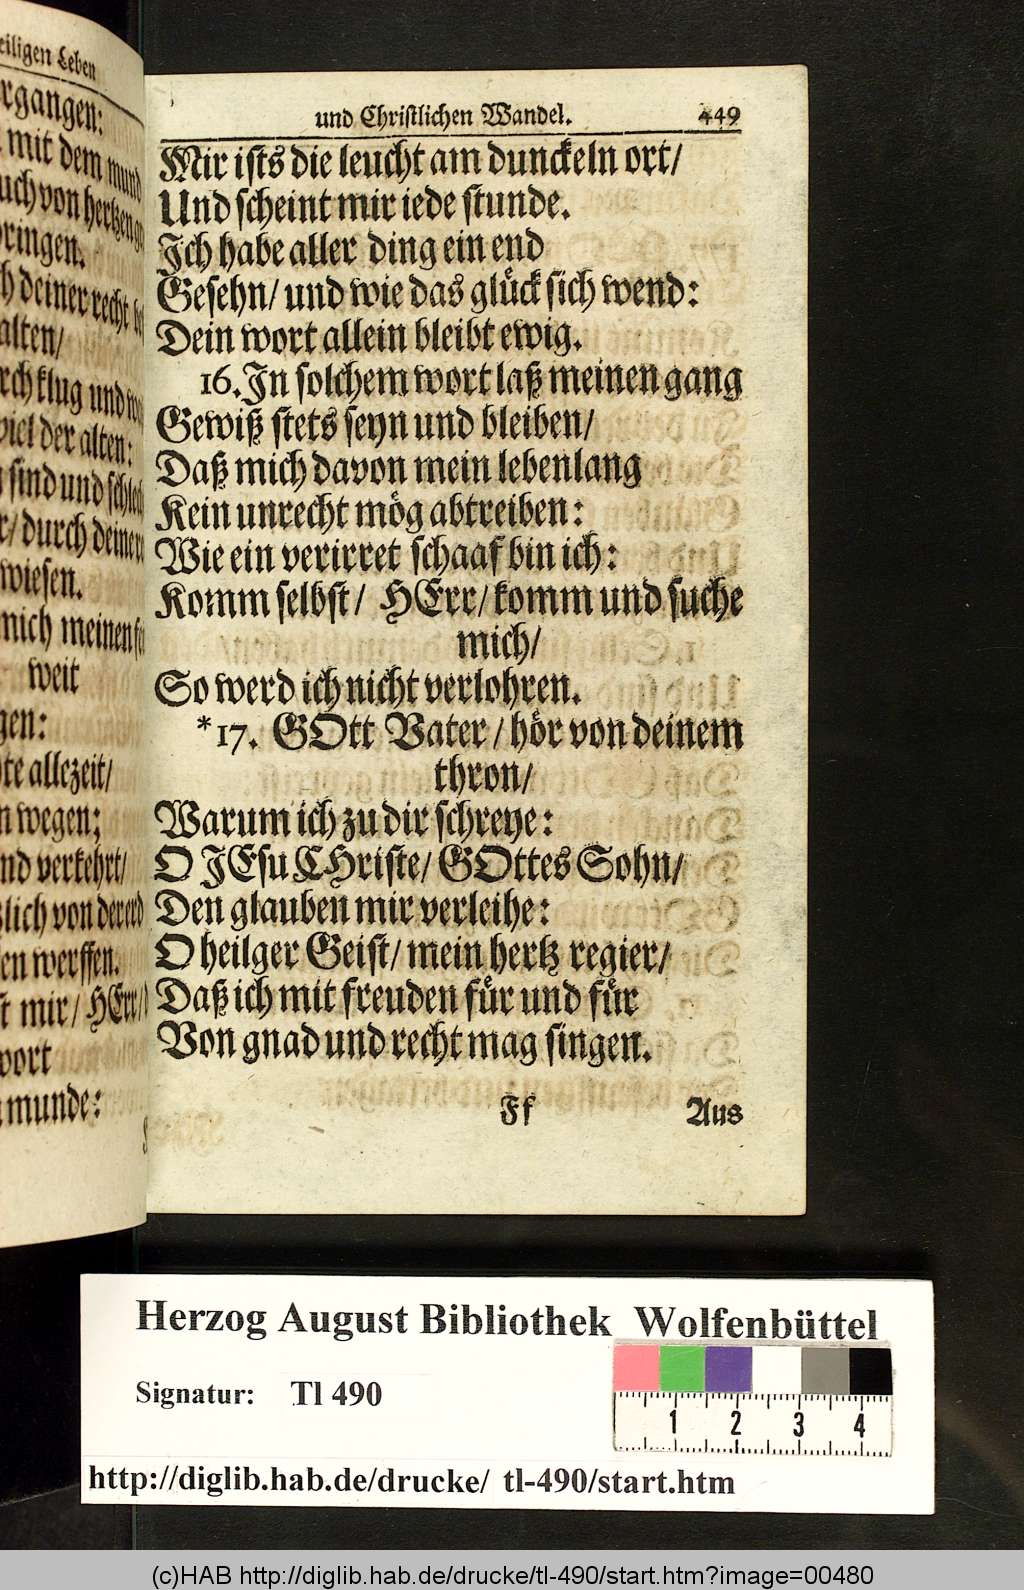 eiligen Leben
rgangen:
mit dem mund
uch von hertzen
ringen.
h deiner recht
alten/
rch klug und
viel der alten:
sind und
r/ durch deinen
wiesen.
mich meinen
weit
gen:
te allezeit/
n wegen;
nd verkehrt/
lich von der erd
en werffen.
st mir/ HErr/
wort
munde:
und Christlichen Wandel. 449
Mir ists die leucht am dunckeln ort/
Und scheint mir iede stunde.
Ich habe aller ding ein end
Gesehn/ und wie das glück sich wend:
Dein wort allein bleibt ewig.
16. In solchem wort laß meinen gang
Gewiß stets seyn und bleiben/
Daß mich davon mein lebenlang
Kein unrecht mög abtreiben:
Wie ein verirret schaaf bin ich:
Komm selbst/ HErr/ komm und suche
mich/
So werd ich nicht verlohren.
*17. GOtt Vater/ hör von deinem
thron/
Warum ich zu dir schreye:
O JEsu CHriste/ GOttes Sohn/
Den glauben mir verleihe:
O heilger Geist/ mein hertz regier/
Daß ich mit freuden für und für
Von gnad und recht mag singen.
Ff Aus
Herzog August Bibliothek Wolfenbüttel
Signatur: Tl 490
1 2 3 4
http://diglib.hab.de/drucke/ tl-490/start.htm
(c)HAB http://diglib.hab.de/drucke/tl-490/start.htm?image=00480